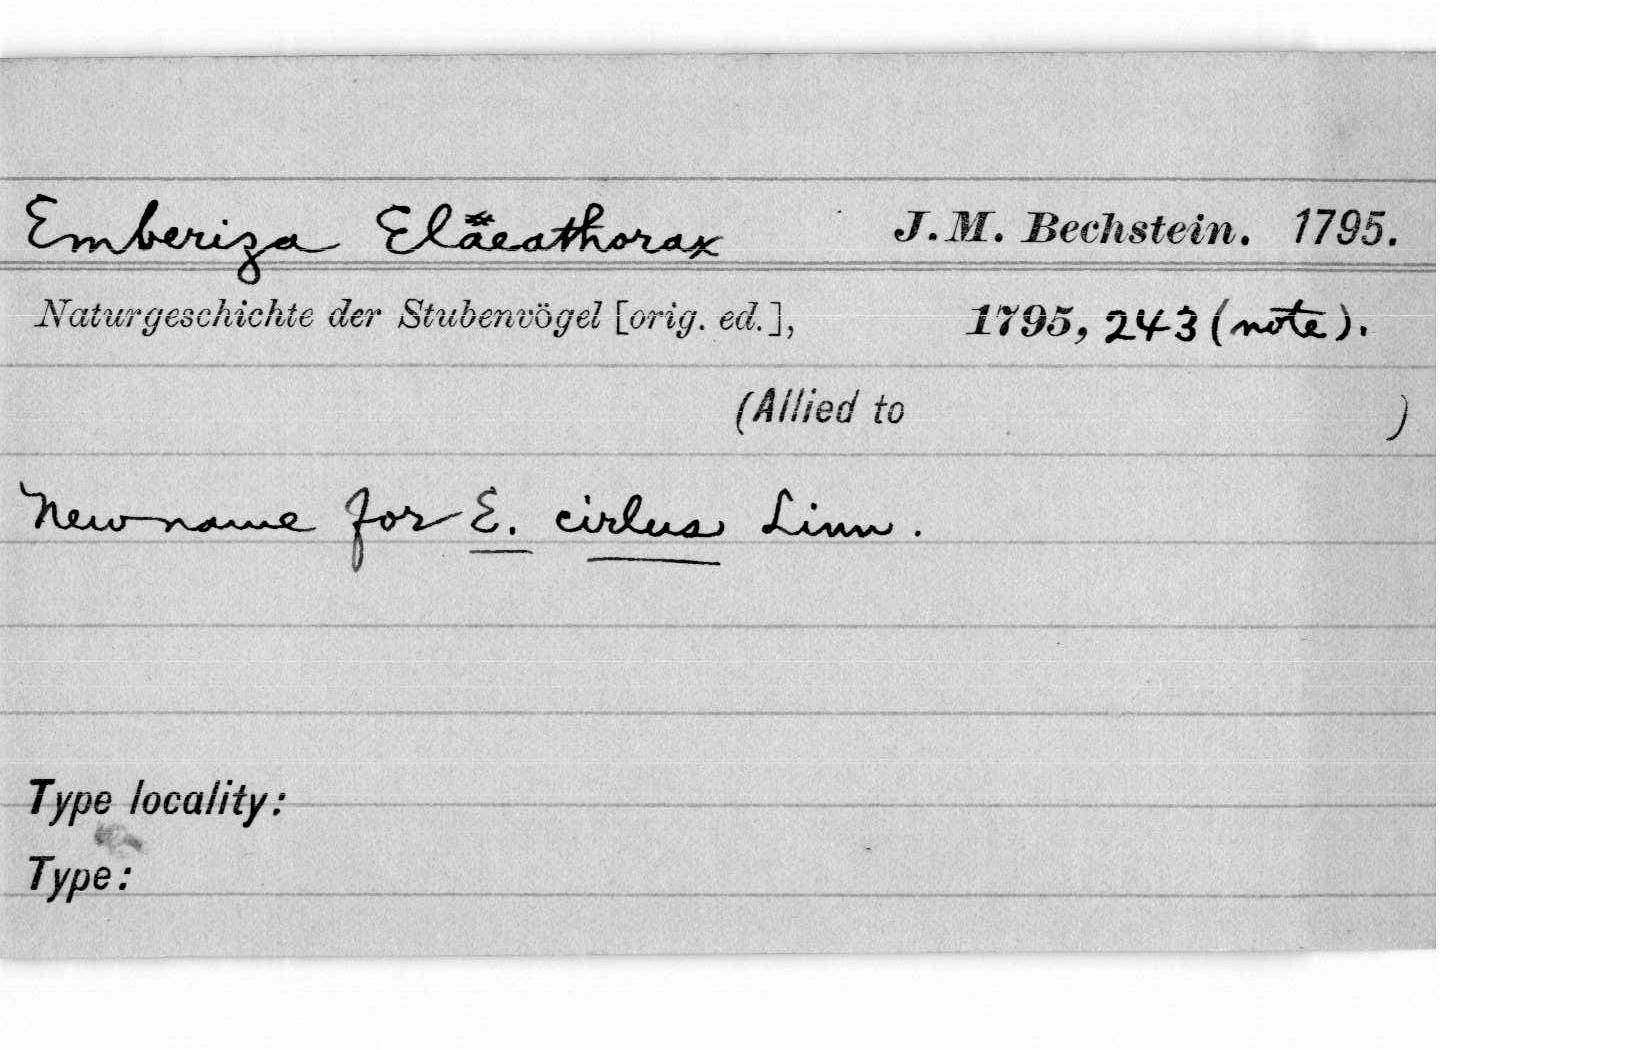 Emberiza Eläeathorax J. M. Bechstein. 1795.
Naturgeschichte der Stubenvögel [orig. ed.], 1795, 243 (note).
(Allied to )
New name for E. cirlus Linn.
Type locality:
Type: